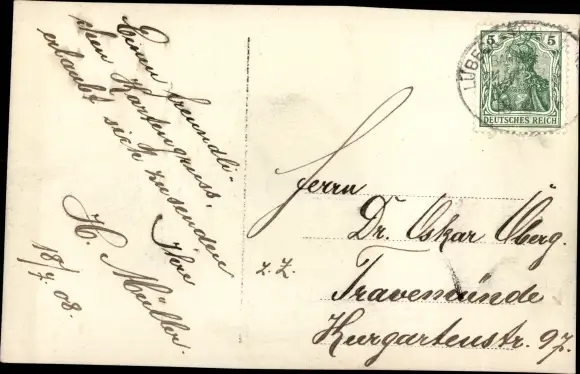 Einen freundli-
chen Kartengruss,
erlaubt sich zusenden
Ihre
H. Müller.
18/7. 08.
5 5
DEUTSCHES REICH
LÜBECK
Herrn
Dr. Oskar Oberg.
z. Z.
Travemünde
Kurgartenstr. 97.